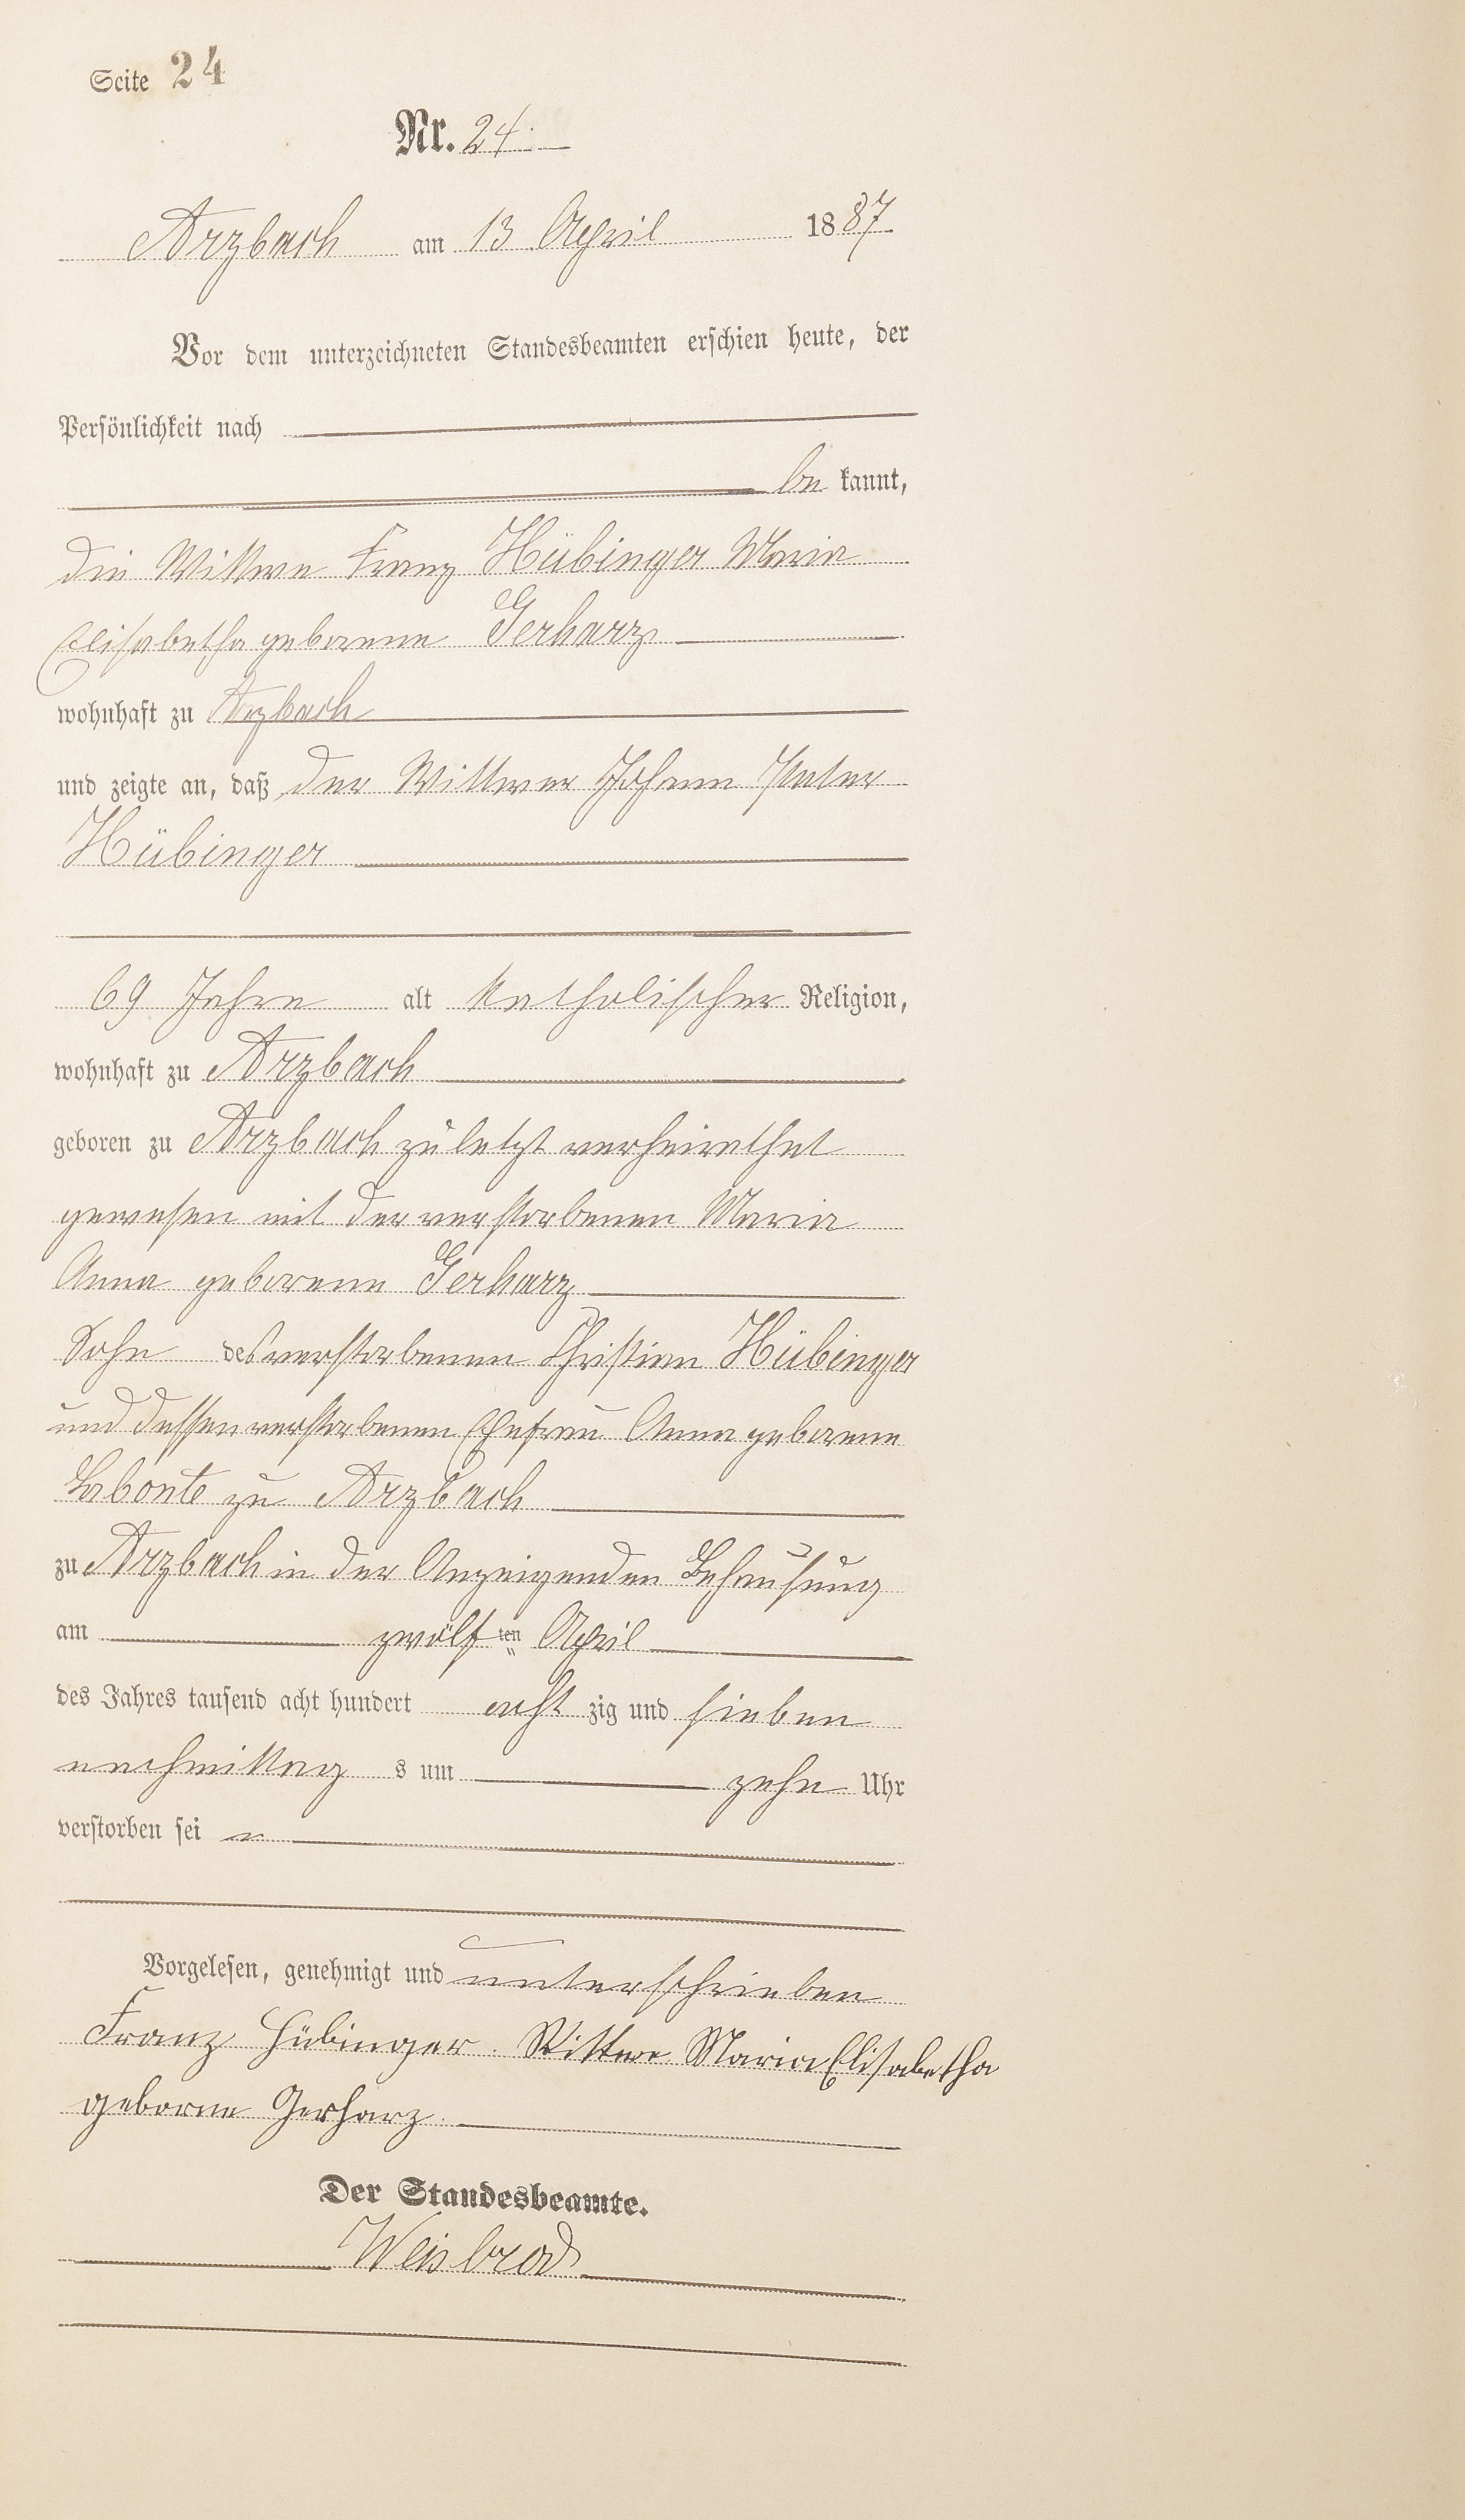 Seite 24
Nr. 24.
Arzbach am 13 April 1887.
Vor dem unterzeichneten Standesbeamten erschien heute, der
Persönlichkeit nach
be kannt,
die Wittwe Franz Hübinger Maria
Elisabetha geborene Gerharz
wohnhaft zu Arzbach
und zeigte an, daß der Wittwer Johann Peter
Hübinger
69 Jahre alt katholischer Religion,
wohnhaft zu Arzbach
geboren zu Arzbach zuletzt verheirathet
gewesen mit der verstorbenen Maria
Anna geborene Gerharz
Sohn des verstorbenen Christian Hübinger
und dessen verstorbenen Ehefrau Anna geborene
Labonte zu Arzbach
zu Arzbach in der Anzeigenden Behausung
am zwölf ten April
des Jahres tausend acht hundert acht zig und sieben
nachmittag s um zehn Uhr
verstorben sei
Vorgelesen, genehmigt und unterschrieben
Franz Hübinger. Wittwe Maria Elisabetha
geborne Gerharz.
Der Standesbeamte.
Weisbrod